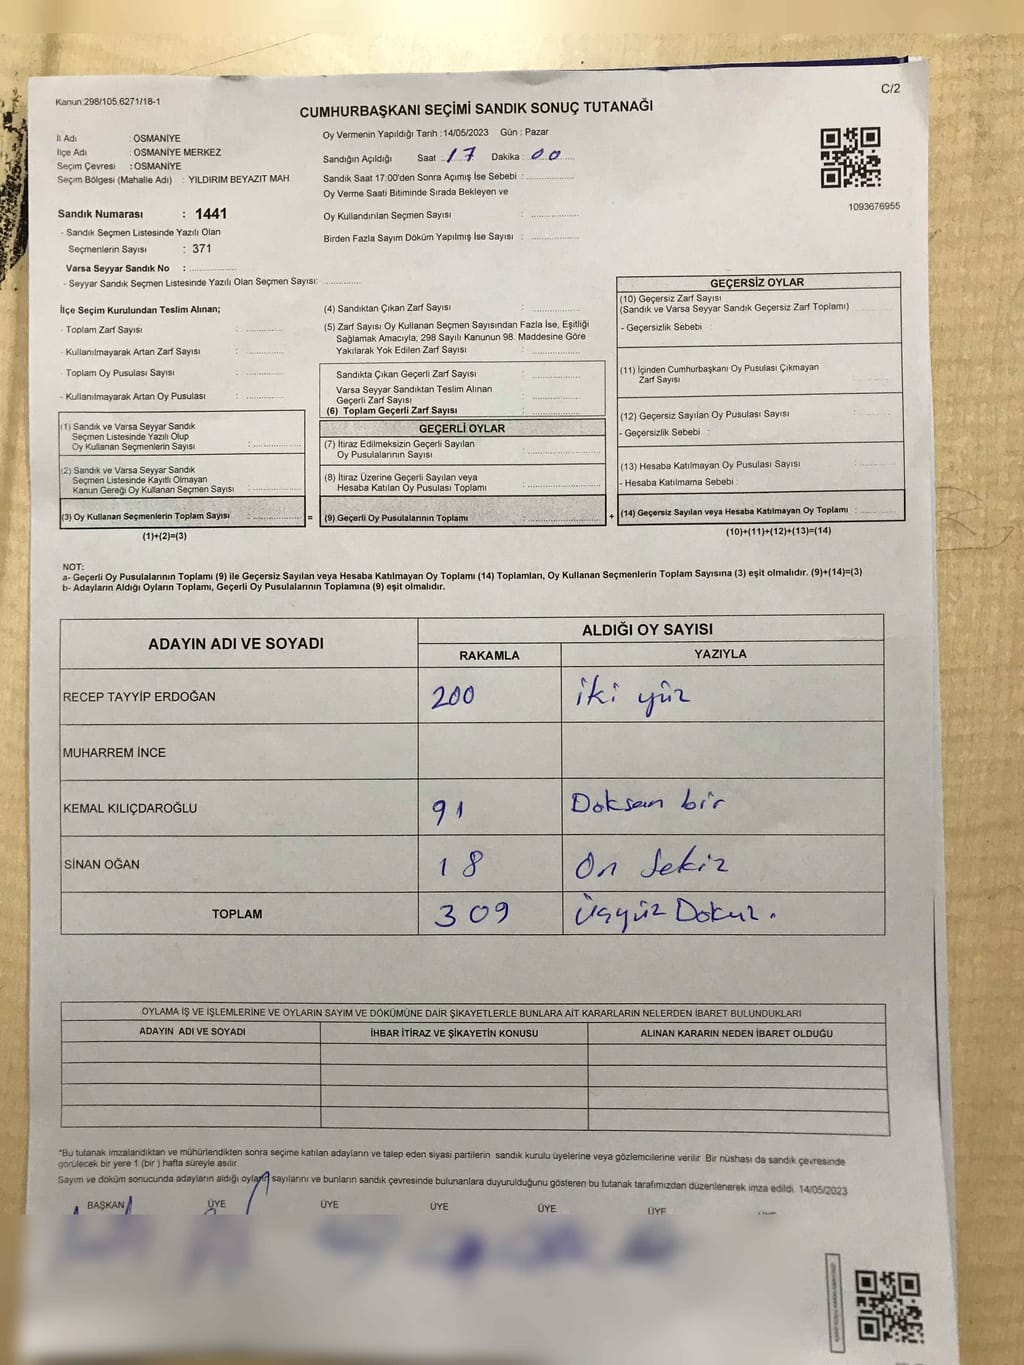 Kanun:298/105,6271/18-1
C/2
CUMHURBAŞKANI SEÇİMİ SANDIK SONUÇ TUTANAĞI
İl Adı : OSMANİYE
İlçe Adı : OSMANİYE MERKEZ
Seçim Çevresi : OSMANİYE
Seçim Bölgesi (Mahalle Adı) : YILDIRIM BEYAZIT MAH.
Sandık Numarası : 1441
- Sandık Seçmen Listesinde Yazılı Olan
Seçmenlerin Sayısı : 371
Varsa Seyyar Sandık No : ................
- Seyyar Sandık Seçmen Listesinde Yazılı Olan Seçmen Sayısı: ............
Oy Vermenin Yapıldığı Tarih :14/05/2023 Gün : Pazar
Sandığın Açıldığı Saat : 17 Dakika : 00
Sandık Saat 17:00'den Sonra Açımış İse Sebebi : ................
Oy Verme Saati Bitiminde Sırada Bekleyen ve
Oy Kullandırılan Seçmen Sayısı : ................
Birden Fazla Sayım Döküm Yapılmış İse Sayısı : ................
1093676955
İlçe Seçim Kurulundan Teslim Alınan;
- Toplam Zarf Sayısı : ............
- Kullanılmayarak Artan Zarf Sayısı : ............
- Toplam Oy Pusulası Sayısı : ............
- Kullanılmayarak Artan Oy Pusulası : ............
(1) Sandık ve Varsa Seyyar Sandık
Seçmen Listesinde Yazılı Olup
Oy Kullanan Seçmenlerin Sayısı : ................
(2) Sandık ve Varsa Seyyar Sandık
Seçmen Listesinde Kayıtlı Olmayan
Kanun Gereği Oy Kullanan Seçmen Sayısı : ................
(3) Oy Kullanan Seçmenlerin Toplam Sayısı : ................
(1)+(2)=(3)
(4) Sandıktan Çıkan Zarf Sayısı : ................
(5) Zarf Sayısı Oy Kullanan Seçmen Sayısından Fazla İse, Eşitliği
Sağlamak Amacıyla; 298 Sayılı Kanunun 98. Maddesine Göre
Yakılarak Yok Edilen Zarf Sayısı : ................
Sandıkta Çıkan Geçerli Zarf Sayısı : ................
Varsa Seyyar Sandıktan Teslim Alınan
Geçerli Zarf Sayısı : ................
(6) Toplam Geçerli Zarf Sayısı : ................
GEÇERLİ OYLAR
(7) İtiraz Edilmeksizin Geçerli Sayılan
Oy Pusulalarının Sayısı : ................
(8) İtiraz Üzerine Geçerli Sayılan veya
Hesaba Katılan Oy Pusulası Toplamı : ................
= (9) Geçerli Oy Pusulalarının Toplamı : ................ +
GEÇERSİZ OYLAR
(10) Geçersiz Zarf Sayısı
(Sandık ve Varsa Seyyar Sandık Geçersiz Zarf Toplamı)
- Geçersizlik Sebebi :
(11) İçinden Cumhurbaşkanı Oy Pusulası Çıkmayan
Zarf Sayısı
(12) Geçersiz Sayılan Oy Pusulası Sayısı :
- Geçersizlik Sebebi :
(13) Hesaba Katılmayan Oy Pusulası Sayısı :
- Hesaba Katılmama Sebebi :
(14) Geçersiz Sayılan veya Hesaba Katılmayan Oy Toplamı :
(10)+(11)+(12)+(13)=(14)
NOT:
a- Geçerli Oy Pusulalarının Toplamı (9) ile Geçersiz Sayılan veya Hesaba Katılmayan Oy Toplamı (14) Toplamları, Oy Kullanan Seçmenlerin Toplam Sayısına (3) eşit olmalıdır. (9)+(14)=(3)
b- Adayların Aldığı Oyların Toplamı, Geçerli Oy Pusulalarının Toplamına (9) eşit olmalıdır.
ADAYIN ADI VE SOYADI ALDIĞI OY SAYISI
RAKAMLA YAZIYLA
RECEP TAYYİP ERDOĞAN 200 iki yüz
MUHARREM İNCE
KEMAL KILIÇDAROĞLU 91 Doksan bir
SİNAN OĞAN 18 On Sekiz
TOPLAM 309 Üçyüz Dokuz.
OYLAMA İŞ VE İŞLEMLERİNE VE OYLARIN SAYIM VE DÖKÜMÜNE DAİR ŞİKAYETLERLE BUNLARA AİT KARARLARIN NELERDEN İBARET BULUNDUKLARI
ADAYIN ADI VE SOYADI İHBAR İTİRAZ VE ŞİKAYETİN KONUSU ALINAN KARARIN NEDEN İBARET OLDUĞU
*Bu tutanak imzalandıktan ve mühürlendikten sonra seçime katılan adayların ve talep eden siyasi partilerin sandık kurulu üyelerine veya gözlemcilerine verilir. Bir nüshası da sandık çevresinde
görülecek bir yere 1 (bir) hafta süreyle asılır.
Sayım ve döküm sonucunda adayların aldığı oyların sayılarını ve bunların sandık çevresinde bulunanlara duyurulduğunu gösteren bu tutanak tarafımızdan düzenlenerek imza edildi. 14/05/2023
BAŞKAN ÜYE ÜYE ÜYE ÜYE ÜYE